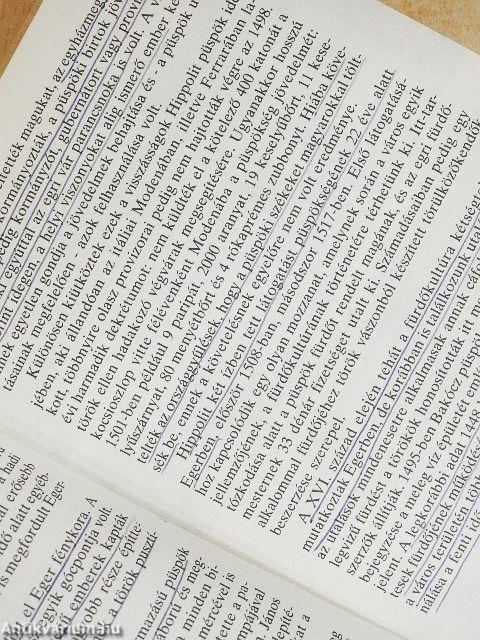 ették magukat, az egyházmeg
ormányozták, a püspök birtok
pedig kormányzói, gubernátori vagy provi
egyúttal az egri vár parancsnoka is volt. A v
nt idegen, a helyi viszonyokat alig ismerő ember ke
nek egyetlen gondja a jövedelmek behajtása és - a püspök u
tásainak megfelelően - azok felhasználása volt.
Különösen kiütköztek ezek a visszásságok Hippolit püspök ide
jében, aki állandóan az itáliai Modenában, illetve Ferrarában la
kott, többnyire olasz provizorai pedig nem hajtották végre az 1498.
évi harmadik dekrétumot: nem küldték el a kötelező 400 katonát a
török ellen hadakozó végvárak megsegítésére. Ugyanakkor hosszú
kocsioszlop vitte félévenként Modenába a püspökség jövedelmét:
1501-ben például 9 paripát, 2000 aranyat, 19 keselyűbőrt, 11 kese-
lyűszárnyat, 80 menyétbőrt és 4 rókaprémes zubbonyt. Hiába köve-
telték az országgyűlések, hogy a püspök székeket magyarokkal tölt-
sék be, ennek a követelésnek egyelőre nem volt eredménye.
Hippolit két ízben tett látogatást püspökségének 22 éve alatt
Egerben, először 1508-ban, másodszor 1517-ben. Első látogatásá-
hoz kapcsolódik egy olyan mozzanat, amelynek során a város egyik
jellemzőjének, a fürdőkultúrának történetére térhetünk ki. Itt-tar-
tózkodása alatt a püspök fürdőt rendelt magának, és az egri fürdő-
mesternek 33 dénár fizetséget utalt ki. Számadásaiban pedig egy
alkalommal fürdőjéhez török vászonból készített törülközőkendők
beszerzése szerepel.
A XVI. század elején tehát a fürdőkultúra kétség
mutatkoztak Egerben, de korábban is találkozunk
az utalások mindenesetre alkalmasak annak cáf
legvízű fürdés a törökök honosították itt m
szerzők állítják. 1495-ben Bakócz püspök
bejegyzése a meleg víz épületét emlí
jelent. A legkorábbi adat 1448
tések fürdőjének működésé
a város területén tör
nálása a fenti idé
a hadi
al erősebb
idő alatt egyéb
is megfordult Eger-
el Eger fénykora. A
egyik gócpontja volt.
ső emberek kapták
abb része építte-
a török puszi-
mazású püspök
ábori és meg-
a minden bi-
mércével is
ette a pa-
ompájával
János
Antikvarium.hu